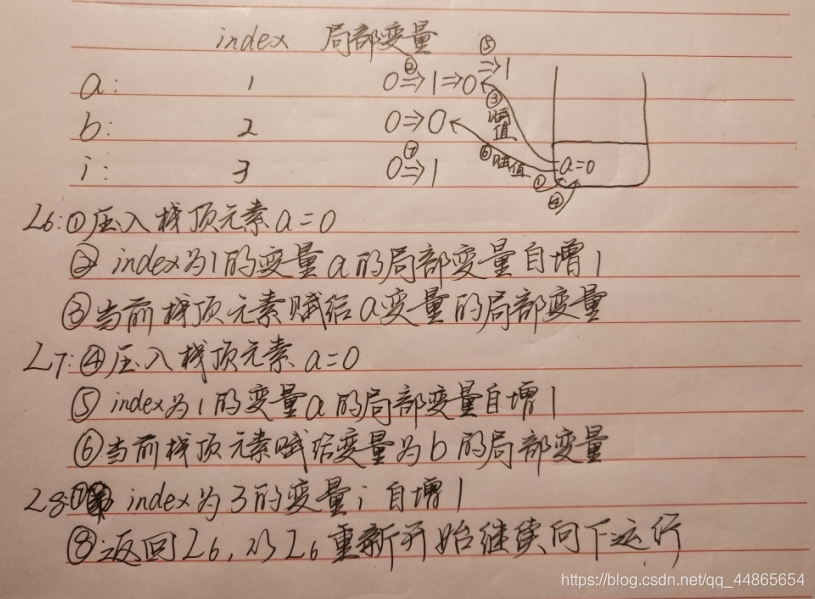 index 局部变量
⑤
a: 1 0②⇒1⇒0 ⇒1
③赋值
b: 2 0⇒0
⑥赋值 a=0
i: 3 0⑦⇒1
① ④
L6:①压入栈顶元素a=0
② index为1的变量a的局部变量自增1
③当前栈顶元素赋给a变量的局部变量
L7:④压入栈顶元素a=0
⑤ index为1的变量a的局部变量自增1
⑥当前栈顶元素赋给变量为b的局部变量
L8:⑦ index为3的变量i自增1
⑧返回L6,从L6重新开始继续向下运行
https://blog.csdn.net/qq_44865654